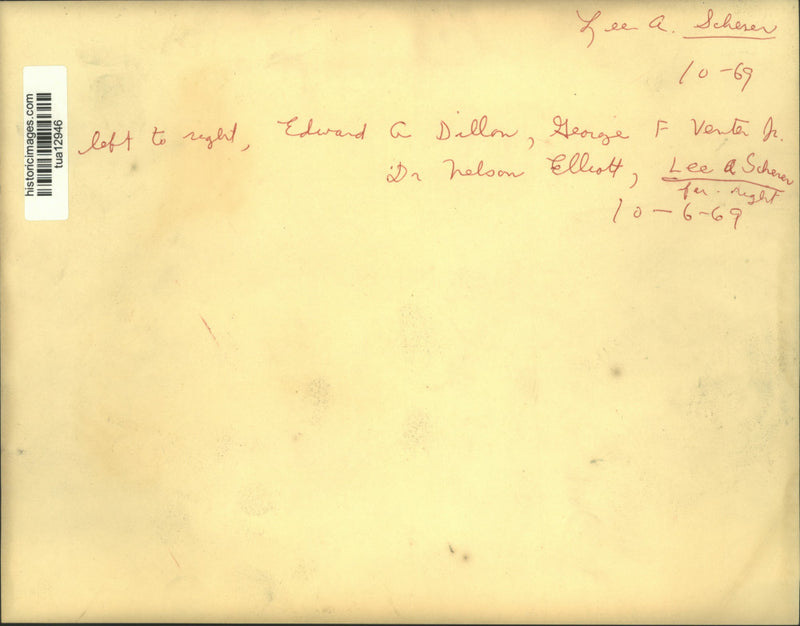 Lee A. Scherer
10-69
left to right, Edward A Dillon, George F Venter Jr.
Dr Nelson Elliott, Lee A Scherer
far-right
10-6-69
historicimages.com
tua12946